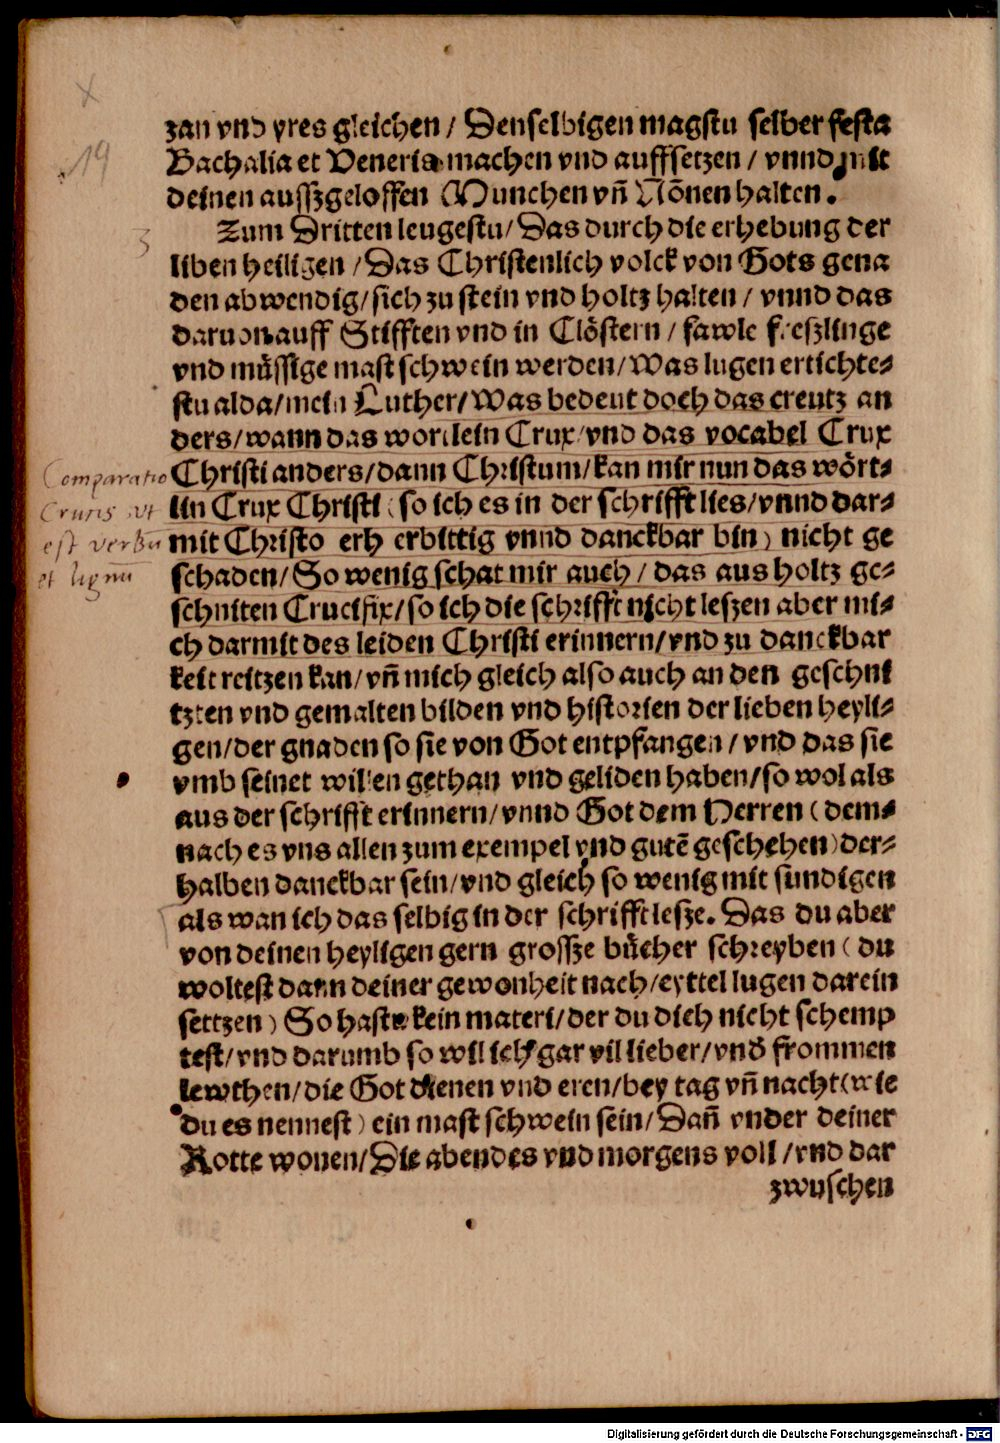 x
19
zan vnd yres gleichen / Denselbigen magstu selber festa
Bachalia et Veneria machen vnd auffsetzen / vnnd mit
deinen ausszgeloffen Munchen vñ Nõnen halten.
3
Zum Dritten leugestu / Das durch die erhebung der
liben heiligen / Das Christenlich volck von Gots gena
den abwendig / sich zu stein vnd holtz halten / vnnd das
daruon auff Stifften vnd in Clöstern / fawle freszlinge
vnd müssige mastschwein werden / Was lugen ertichte⸗
stu alda / mein Luther / Was bedeut doch das creutz an
ders / wann das wortlein Crux / vnd das vocabel Crux
Christi anders / dann Christum / kan mir nun das wört⸗
lin Crux Christi ( so ich es in der schrifft lies / vnnd dar⸗
mit Christo erh erbittig vnnd danckbar bin ) nicht ge
schaden / So wenig schat mir auch / das aus holtz ge⸗
schniten Crucifix / so ich die schrifft nicht leszen aber mi⸗
ch darmit des leiden Christi erinnern / vnd zu danckbar
keit reitzen kan / vñ mich gleich also auch an den geschni
tzten vnd gemalten bilden vnd historien der lieben heyli⸗
gen / der gnaden so sie von Got entpfangen / vnd das sie
vmb seinet willen gethan vnd geliden haben / so wol als
aus der schrifft erinnern / vnnd Got dem Herren ( dem⸗
nach es vns allen zum exempel vnd gutẽ geschehen ) der⸗
halben danckbar sein / vnd gleich so wenig mit sundigen
als wan ich das selbig in der schrifft lesze. Das du aber
von deinen heyligen gern grossze bücher schreyben ( du
woltest dann deiner gewonheit nach / eyttel lugen darein
settzen ) So hastu kein materi / der du dich nicht schemp
test / vnd darumb so wil ich gar vil lieber / vnd frommen
lewthen / die Got dienen vnd eren / bey tag vñ nacht ( wie
du es nennest ) ein mastschwein sein / Dañ vnder deiner
Rotte wonen / Die abendes vnd morgens voll / vnd dar
zwuschen
Comparatio
Crucis vt
est verbū
et lignū
Digitalisierung gefördert durch die Deutsche Forschungsgemeinschaft - DFG